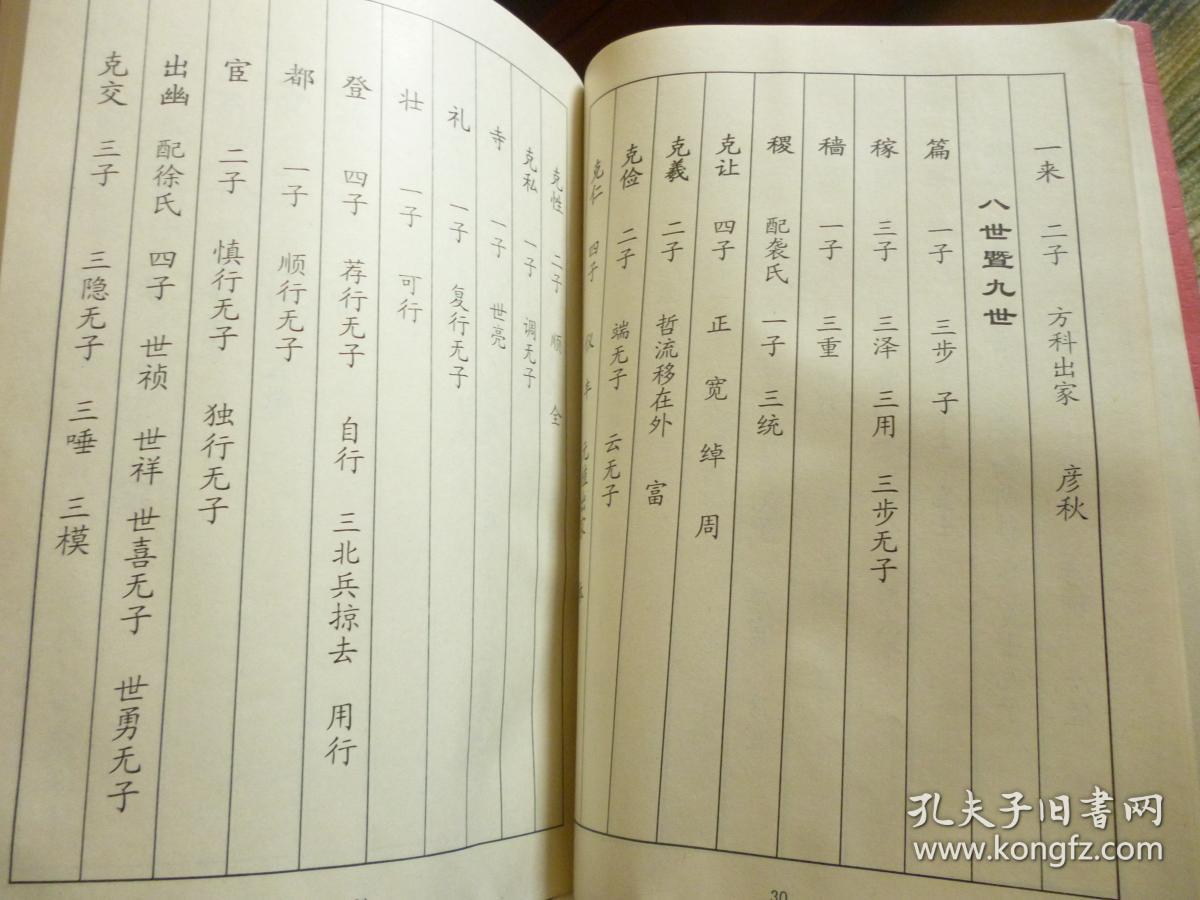 一来 二子 方科出家 彦秋
八世暨九世
篇 一子 三步 子
稼 三子 三泽 三用 三步无子
穑 一子 三重
稷 配袭氏 一子 三统
克让 四子 正 宽 绰 周
克羲 二子 哲流移在外 富
克俭 二子 端无子 云无子
克仁 四子
30
克性 二子 顺 全
克私 一子 调无子
寺 一子 世亮
礼 一子 复行无子
壮 一子 可行
登 四子 荐行无子 自行 三北兵掠去 用行
都 一子 顺行无子
宦 二子 慎行无子 独行无子
出幽 配徐氏 四子 世祯 世祥 世喜无子 世勇无子
克交 三子 三隐无子 三唾 三模
孔夫子旧书网
www.kongfz.com